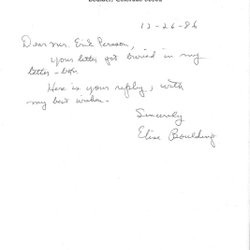 Boulder, Colorado 80302
12-26-86
Dear Mr. Erik Persson,
your letter got buried in my
letter-box.
Here is your reply, with
my best wishes.
Sincerely
Elise Boulding